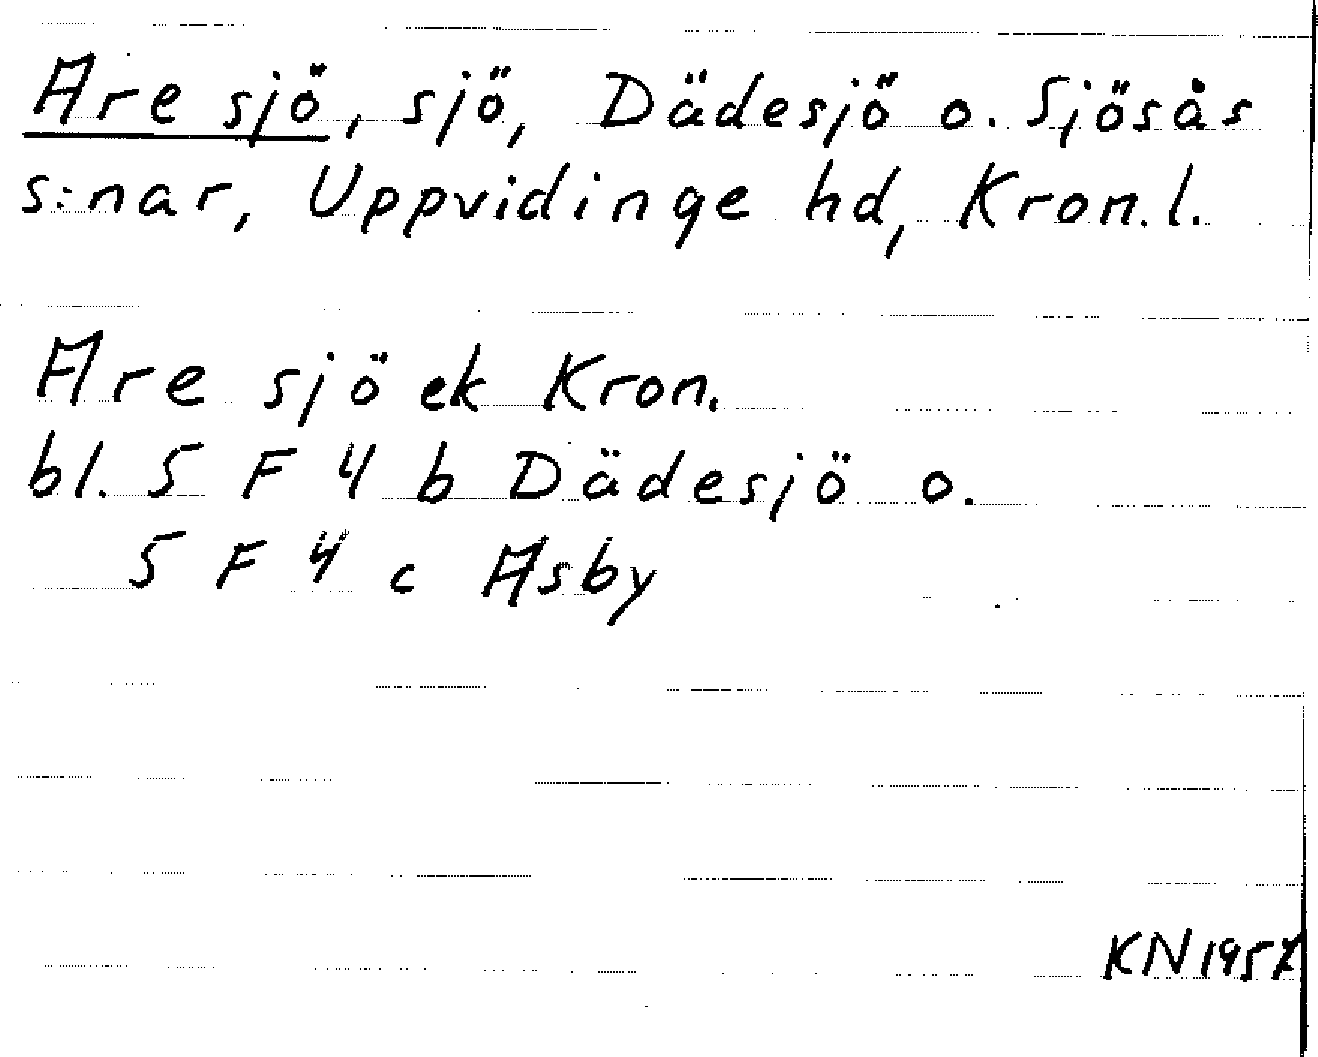 Are sjö, sjö, Dädesjö o. Sjösås
s:nar, Uppvidinge hd, Kron.l.
Are sjö ek Kron.
bl. 5 F 4 b Dädesjö o.
5 F 4 c Asby
KN 1957